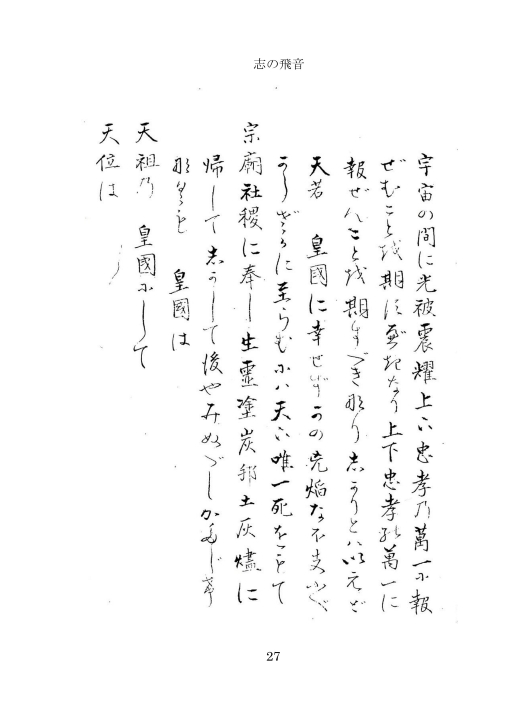 志の飛音
宇宙の間に光被震耀上ハ忠孝乃萬一に報
ぜむこと越期須べきなり上下忠孝能萬一に
報ぜんこと越期すべき那り志かりとハいえど
天若 皇國に幸せず この兇焔なほ支
に至らむにハ天ハ唯一死をもて
宗廟社稷に奉し生靈塗炭邦土灰燼に
帰して志かして後やみぬべし
皇國は
天祖乃 皇國にして
天位は
27